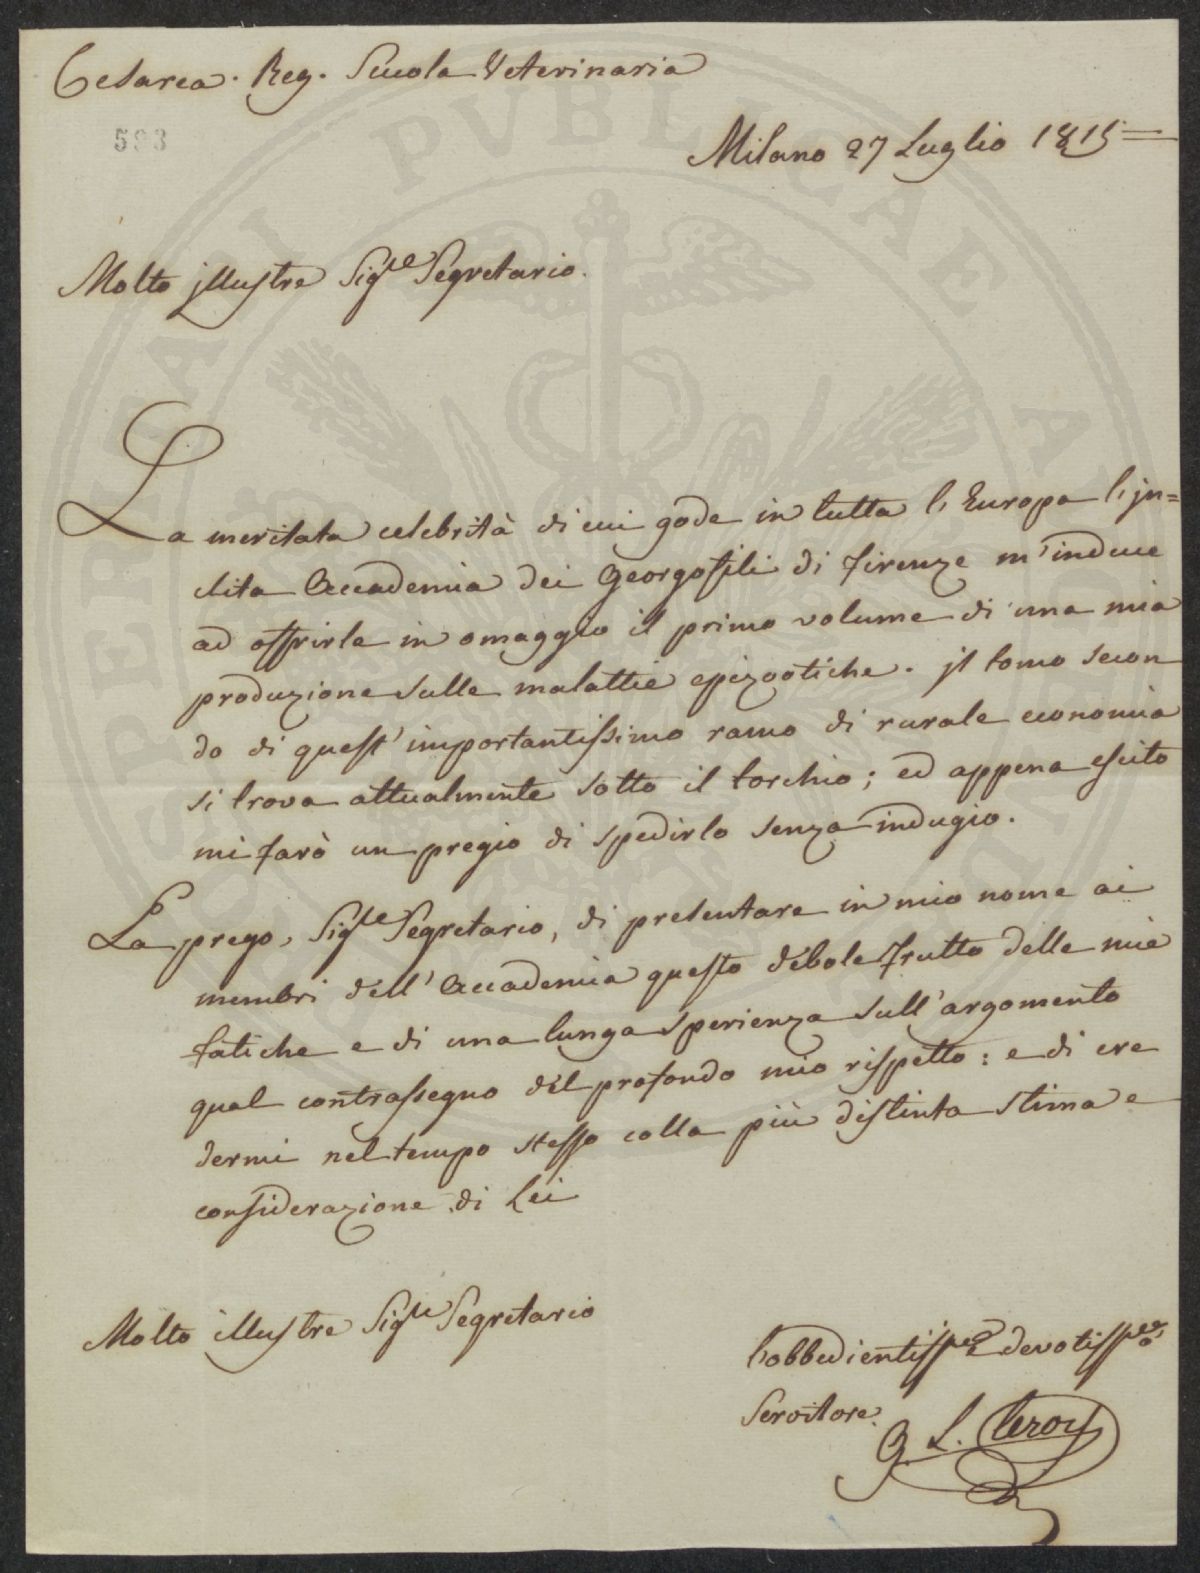 Cesarea. Reg. Scuola Veterinaria
593
Milano 27 Luglio 1815
Molto jllustre Sigre Segretario.
La meritata celebrità di cui gode in tutta l'Europa l'jn=
clita Accademia dei Georgofili di Firenze m'induce
ad offrirle in omaggio il primo volume di una mia
produzione sulle malattie epizootiche. jl tomo secon
do di quest'importantissimo ramo di rurale economia
si trova attualmente sotto il torchio; ed appena escito
mi farò un pregio di spedirlo senza indugio.
La prego, Sigre Segretario, di presentare in mio nome ai
membri dell'Accademia questo debole frutto delle mie
fatiche e di una lunga sperienza sull'argomento
qual contrassegno del profondo mio rispetto: e di cre
dermi nel tempo stesso colla più distinta stima e
considerazione di Lei
Molto illustre Sigre Segretario
L'obbedientissmo devotissmo
Servitore.
G. L. Leroy